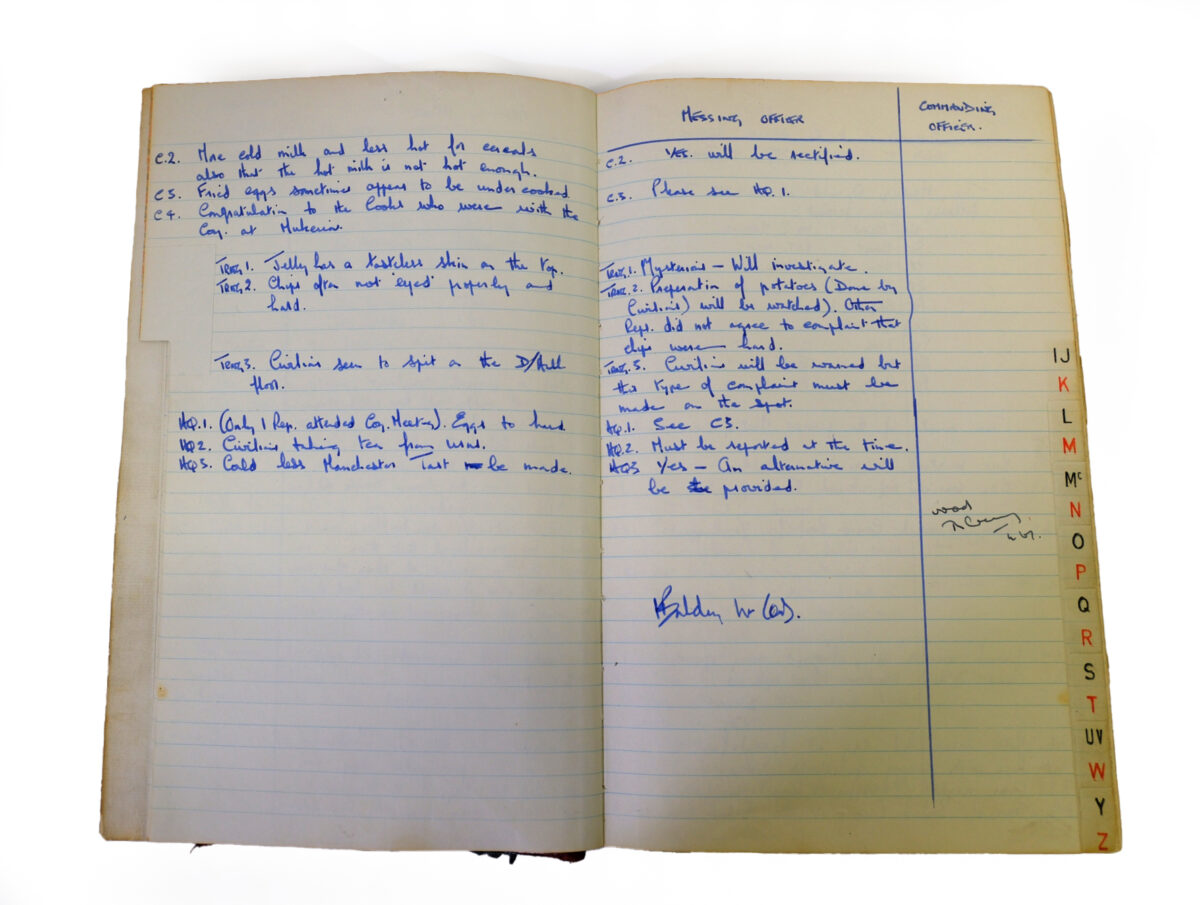 C.2. More cold milk and less hot for cereals
also that the hot milk is not hot enough.
C3. Fried eggs sometimes appear to be undercooked
C4. Congratulation to the Cooks who were with the
Coy. at
Trng 1. Jelly has a tasteless skin on the top.
Trng 2. Chips often not eyed properly and
hard.
Trng 3. Civilians seen to spit on the D/Hall
floor.
HQ.1. (Only 1 Rep. attended Coy. Meeting). Eggs to hard
HQ2. Civilians taking tea from urns.
HQ3. Cold less Manchester Tart be made.
MESSING OFFICER
C.2. Yes. will be rectified.
C.3. Please see HQ.1.
Trng.1. Mysterious – Will investigate.
Trng.2. Preparation of potatoes (Done by
Civilians) will be watched). Other
Reps. did not agree to complaint that
chips were hard.
Trng.3. Civilians will be warned but
this type of complaint must be
made on the spot.
HQ.1. See C3.
HQ.2. Must be reported at the time.
HQ3 Yes – An alternative will
be provided.
COMMANDING
OFFICER.
IJ
K
L
M
Mc
N
O
P
Q
R
S
T
UV
W
Y
Z